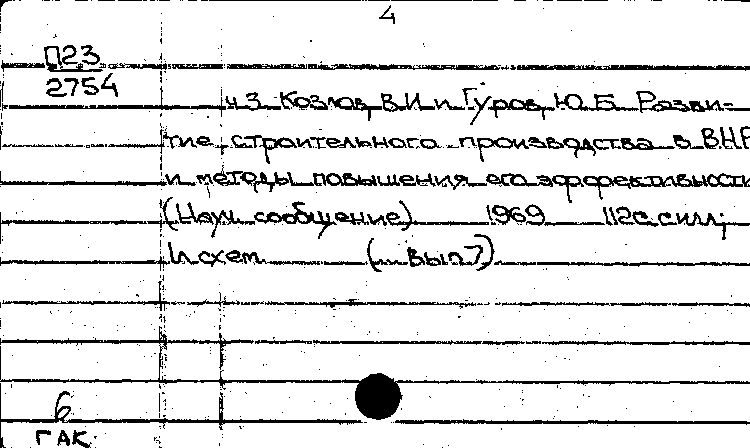 4
П23
2754
ч 3. Козлов, В.И. и Гуров, Ю.Б. Разви-
тие строительного производства в ВНР
и методы повышения его эффективности
(Науч. сообщение) 1969 112с. с илл;
1л схем. (... вып. 7)
6
ГАК.